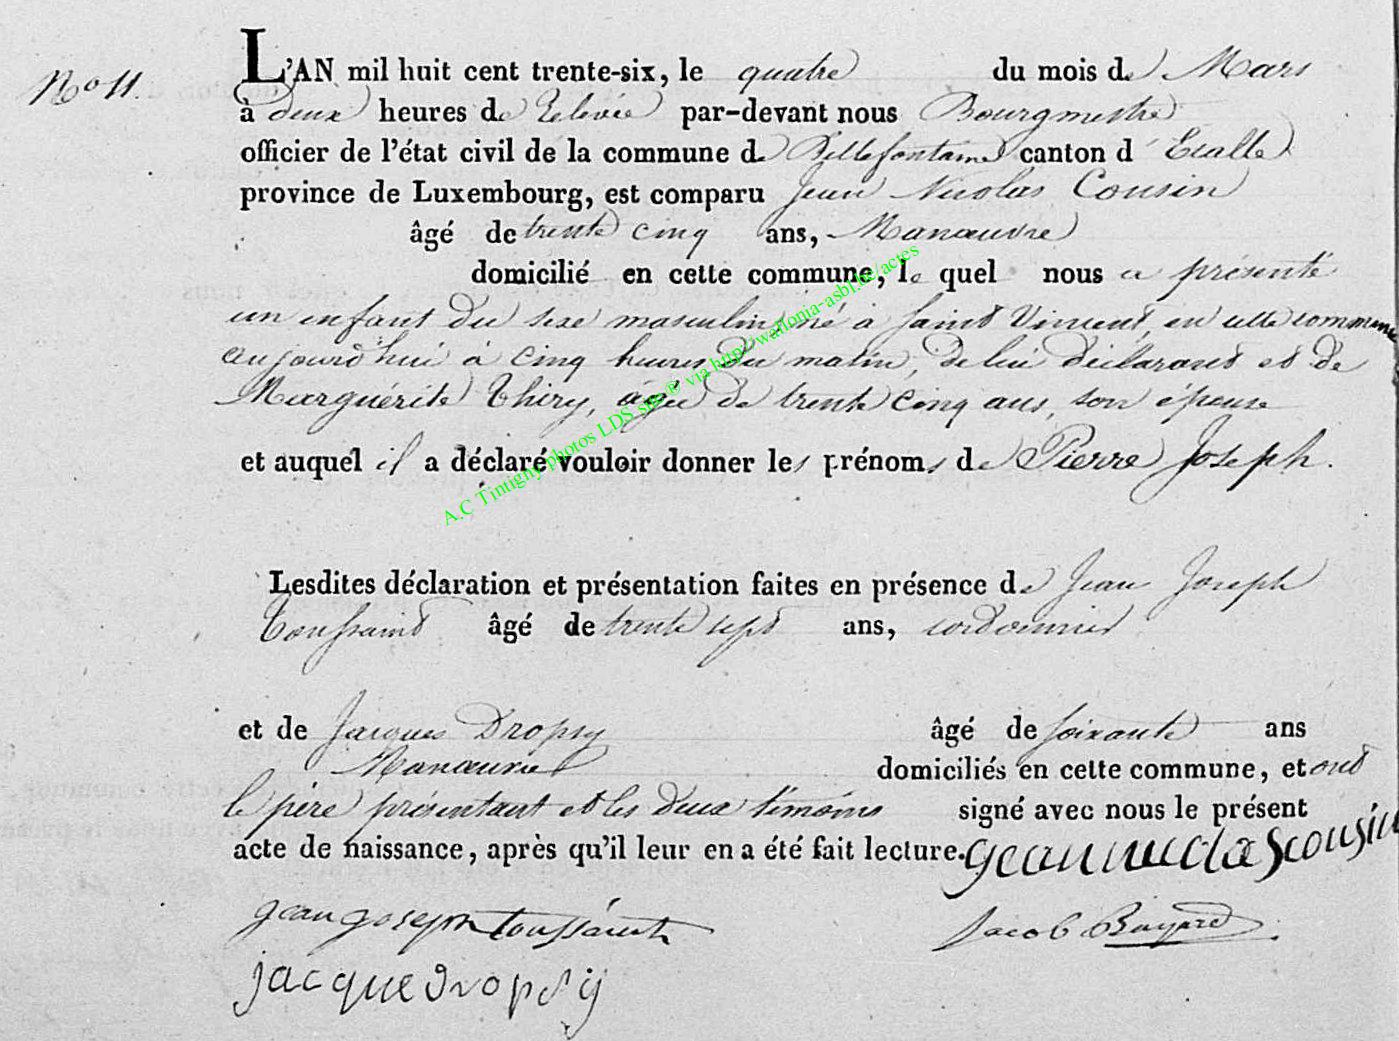 N° 11.
L'AN mil huit cent trente-six, le quatre du mois de Mars
à deux heures de Relevée par-devant nous Bourgmestre
officier de l'état civil de la commune de Bellefontaine canton d'Etalle
province de Luxembourg, est comparu Jean Nicolas Cousin
âgé de trente cinq ans, Manœuvre
domicilié en cette commune, le quel nous a présenté
un enfant du sexe masculin, né à Saint Vincent, en cette commune
aujourd'hui à cinq heures du matin, de lui déclarant et de
Marguérite Thiry, agée de trente cinq ans, son épouse
et auquel il a déclaré vouloir donner les prénoms de Pierre Joseph.
Lesdites déclaration et présentation faites en présence de Jean Joseph
Toussaint âgé de trente sept ans, cordonnier
et de Jacques Dropsy âgé de soixante ans
Manœuvre domiciliés en cette commune, et ont
le père présentant et les deux témoins signé avec nous le présent
acte de naissance, après qu'il leur en a été fait lecture.
Jean nicolas cousin
jean joseph toussaint Jacob Bayard
jacque dropsy
A.C Tintigny photos LDS site© via http://wallonia-asbl.be/actes